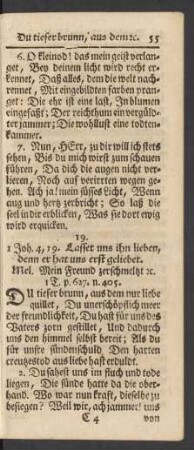 Du tiefer brunn, aus dem ꝛc. 55
6. O kleinod! das mein geist verlan-
get, Bey deinem licht wird recht er-
kennet, Daß alles, dem die welt nach-
rennet, Mit eingebildten farben pran-
get: Die ehr ist eine last, In blumen
eingefaßt; Der reichthum ein vergüld-
ter jammer; Die wohllust eine todten-
kammer.
7. Nun, HErr, zu dir will ich stets
sehen, Bis du mich wirst zum schauen
führen, Da dich die augen nicht ver-
liehren, Noch auf verirrten wegen ge-
hen. Ach ja! mein süsses Licht, Wenn
aug und hertz zerbricht; So laß die
seel in dir erblicken, Was sie dort ewig
wird erquicken.
19.
1 Joh. 4, 19. Lasset uns ihn lieben,
denn er hat uns erst geliebet.
Mel. Mein Freund zerschmeltzt ꝛc.
1 T. p. 627. n. 405.
DU tiefer brunn, aus dem nur liebe
quillet, Du unerschöpflich meer
der freundlichkeit, Du hast für uns des
Vaters zorn gestillet, Und dadurch
uns den himmel selbst bereit: Als du
für unsre sündenschuld, Den harten
creutzestod aus liebe hast erduldt.
2. Du sahest uns im fluch und tode
liegen, Die sünde hatte da die ober-
hand. Wo war nun kraft, dieselbe zu
besiegen? Weil wir, ach jammer! uns
C 4 von